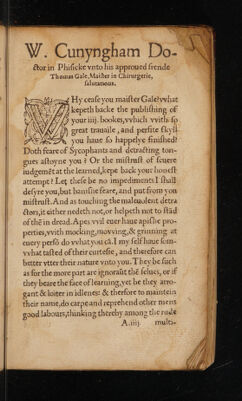 W. Cunyngham Do-
ctor in Phisicke vnto his approued frende
Thomas Gale, Maister in Chirurgerie,
salutations.
WHy cease you maister Gale? vvhat
kepeth backe the publishing of
your iiij. bookes, vvhich vvith so
great trauaile, and perfite skyll
you haue so happelye finished?
Doth feare of Sycophants and detracting ton-
gues astoyne you? Or the mistrust of seuere
iudgemēt at the learned, kepe back your honest
attempt? Let these be no impediments I shall
desyre you, but banishe feare, and put from you
mistrust. And as touching the maleuolent detra
ctors, it either nedeth not, or helpeth not to stād
of thē in dread. Apes vvil euer haue apishe pro-
perties, vvith mocking, movving, & grinning at
euery persō do vvhat you cā. I my self haue som-
vvhat tasted of their curtesie, and therefore can
better vtter their nature vnto you. They be such
as for the more part are ignorāt thē selues, or if
they beare the face of learning, yet be they arro-
gant & loiter in idlenes: & therfore to maintein
their name, do carpe and reprehend other mens
good labours, thinking thereby among the rude
A.iij. multi-